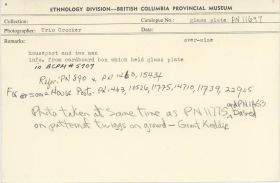 ETHNOLOGY DIVISION—BRITISH COLUMBIA PROVINCIAL MUSEUM
Collection: Catalogue No.: glass plate PN11697
Photographer: Eric Crocker Date:
Remarks: over-size
housepost and two men
info. from cardboard box which held glass plate
in BCPM # 5909
Refer: PN 890 & PN 1460, 15434
For = House Post - PN 1463, 10526, 11775, 14710, 11739, 22905
and PN 1463
Photo taken at Same time as PN 11775, based
on pattern of twigs on ground - Grant Keddie